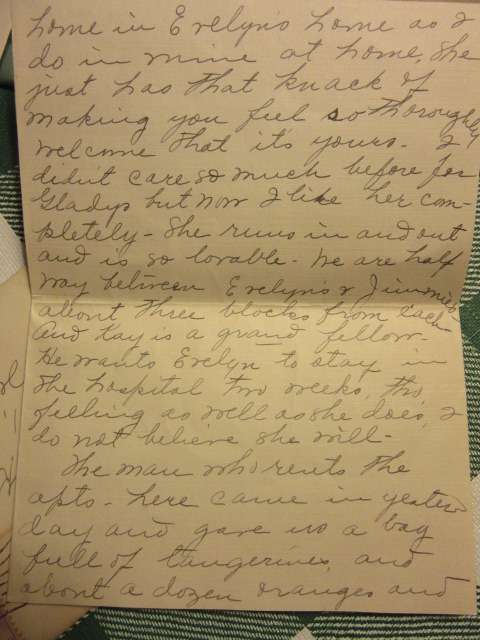 home in Evelyn's home as I
do in mine at home. She
just has that knack of
making you feel so thoroughly
welcome that it's yours. I
didn't care so much before for
Gladys but now I like her com-
pletely - She runs in and out
and is so lovable. We are half
way between Evelyn's & Jimmie's
about three blocks from each
And Kay is a grand fellow.
He wants Evelyn to stay in
the hospital two weeks, tho
feeling as well as she does, I
do not believe she will -
The man who rents the
apts. here came in yester
day and gave us a bag
full of tangerines, and
about a dozen oranges and